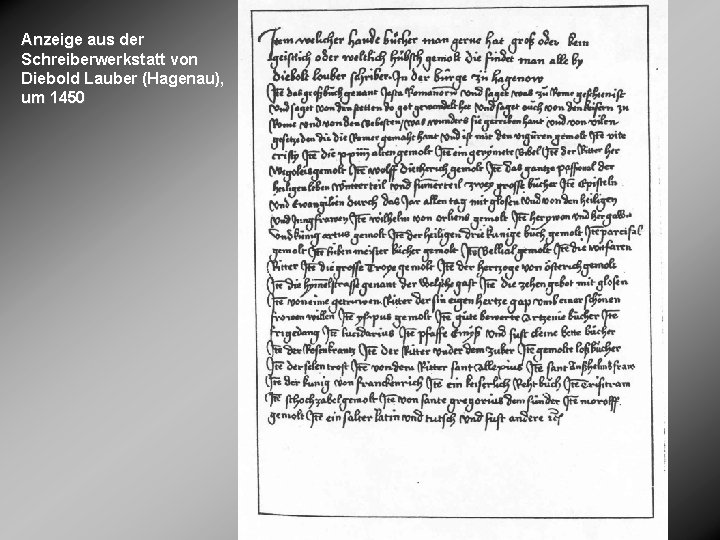 Anzeige aus der
Schreiberwerkstatt von
Diebold Lauber (Hagenau),
um 1450
Item welicher hande bücher man gerne hat groß oder kein
geistlich oder weltlich hübsch gemolt die findet man alle by
diebolt louber schriber In der burge zu hagenow
Itē das groß büch genant Jesta Romanorū vnd saget was zu Rome geschen ist
vnd saget von den stetten do got gewandelt het vnd saget ouch von den keisern zu
Rome vnd von den bebesten was wunders sie getreben hant vnd von vilen
gesetzeden die die Romer gemaht hant vnd ist mit den vigüren gemolt Itē vite
cristy Itē die xxiiij alten gemolt Itē ein gerymete bibel Itē der Ritter her
wigoleis gemolt Itē wolff dietherich gemolt Itē das gantze passional der
heiligen leben winterteil vnd sumerteil zwey grosse bücher Itē Episteln
vnd Ewangilien durch das Jar allen tag mit glosen vnd von den heiligen
vnd Jungfrowen Itē wilhelm von orliens gemolt Itē her ywon vnd her gawin
vnd künig artus gemolt Itē der heiligen drie kunige büch gemolt Itē parcifal
gemolt Itē siben meister bücher gemolt Itē Bellial gemolt Itē die witfaren
Ritter Itē die grosse Troye gemolt Itē der hertzoge von österich gemolt
Itē die hymelstrasse genant der welsche gast Itē die zehen gebot mit glosen
Itē von eime getruwen Ritter der sin eigen hertze gap vmb einer schönen
frowen willen Itē ysopus gemolt Itē güte bewerte artzenie bücher Itē
frigedang Itē lucidarius Itē pfaffe Amyß vnd sust cleine bette bücher
Itē der Rosenkrantz Itē der Ritter vnder dem zuber Itē gemolte loßbücher
Itē der selen trost Itē von dem Ritter sant Allexius Itē sant Anßhelms frage
Itē der kunig von franckenrich Itē ein keiserlich Reht büch Itē Tristram
Itē schochzabel gemolt Itē von sante gregorius dem sünder Itē morolff
gemolt Itē ein salter latin vnd tutsch vnd sust andere